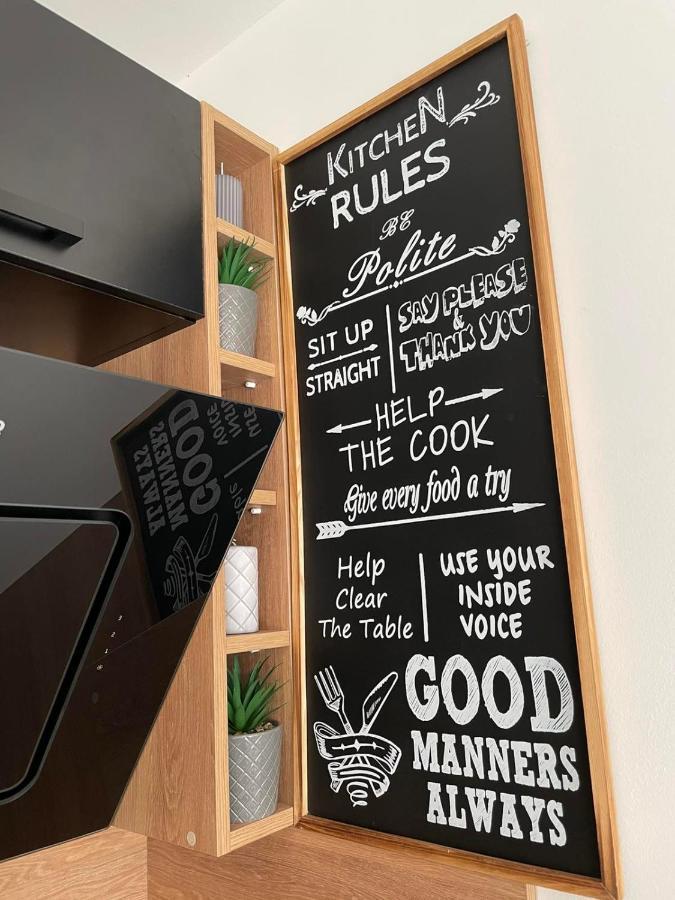 KITCHEN
RULES
BE
Polite
SIT UP
STRAIGHT
SAY PLEASE
&
THANK YOU
HELP
THE COOK
Give every food a try
Help
Clear
The Table
USE YOUR
INSIDE
VOICE
GOOD
MANNERS
ALWAYS
GOOD
MANNERS
ALWAYS
VOICE
INSIDE
1
2
3